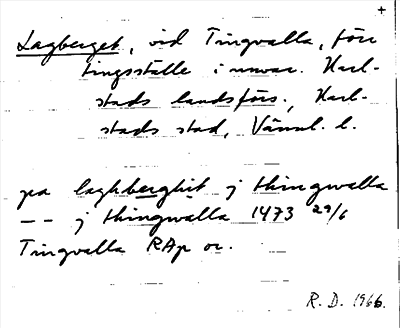 +
Lagberget, vid Tingvalla, förr
tingsställe i nuvar. Karl-
stads landsförs., Karl-
stads stad, Värml. l.
pa laghberghit j thingwalla
-- j thingwalla 1473 29/6
Tingvalla RAp or.
R. D. 1966.